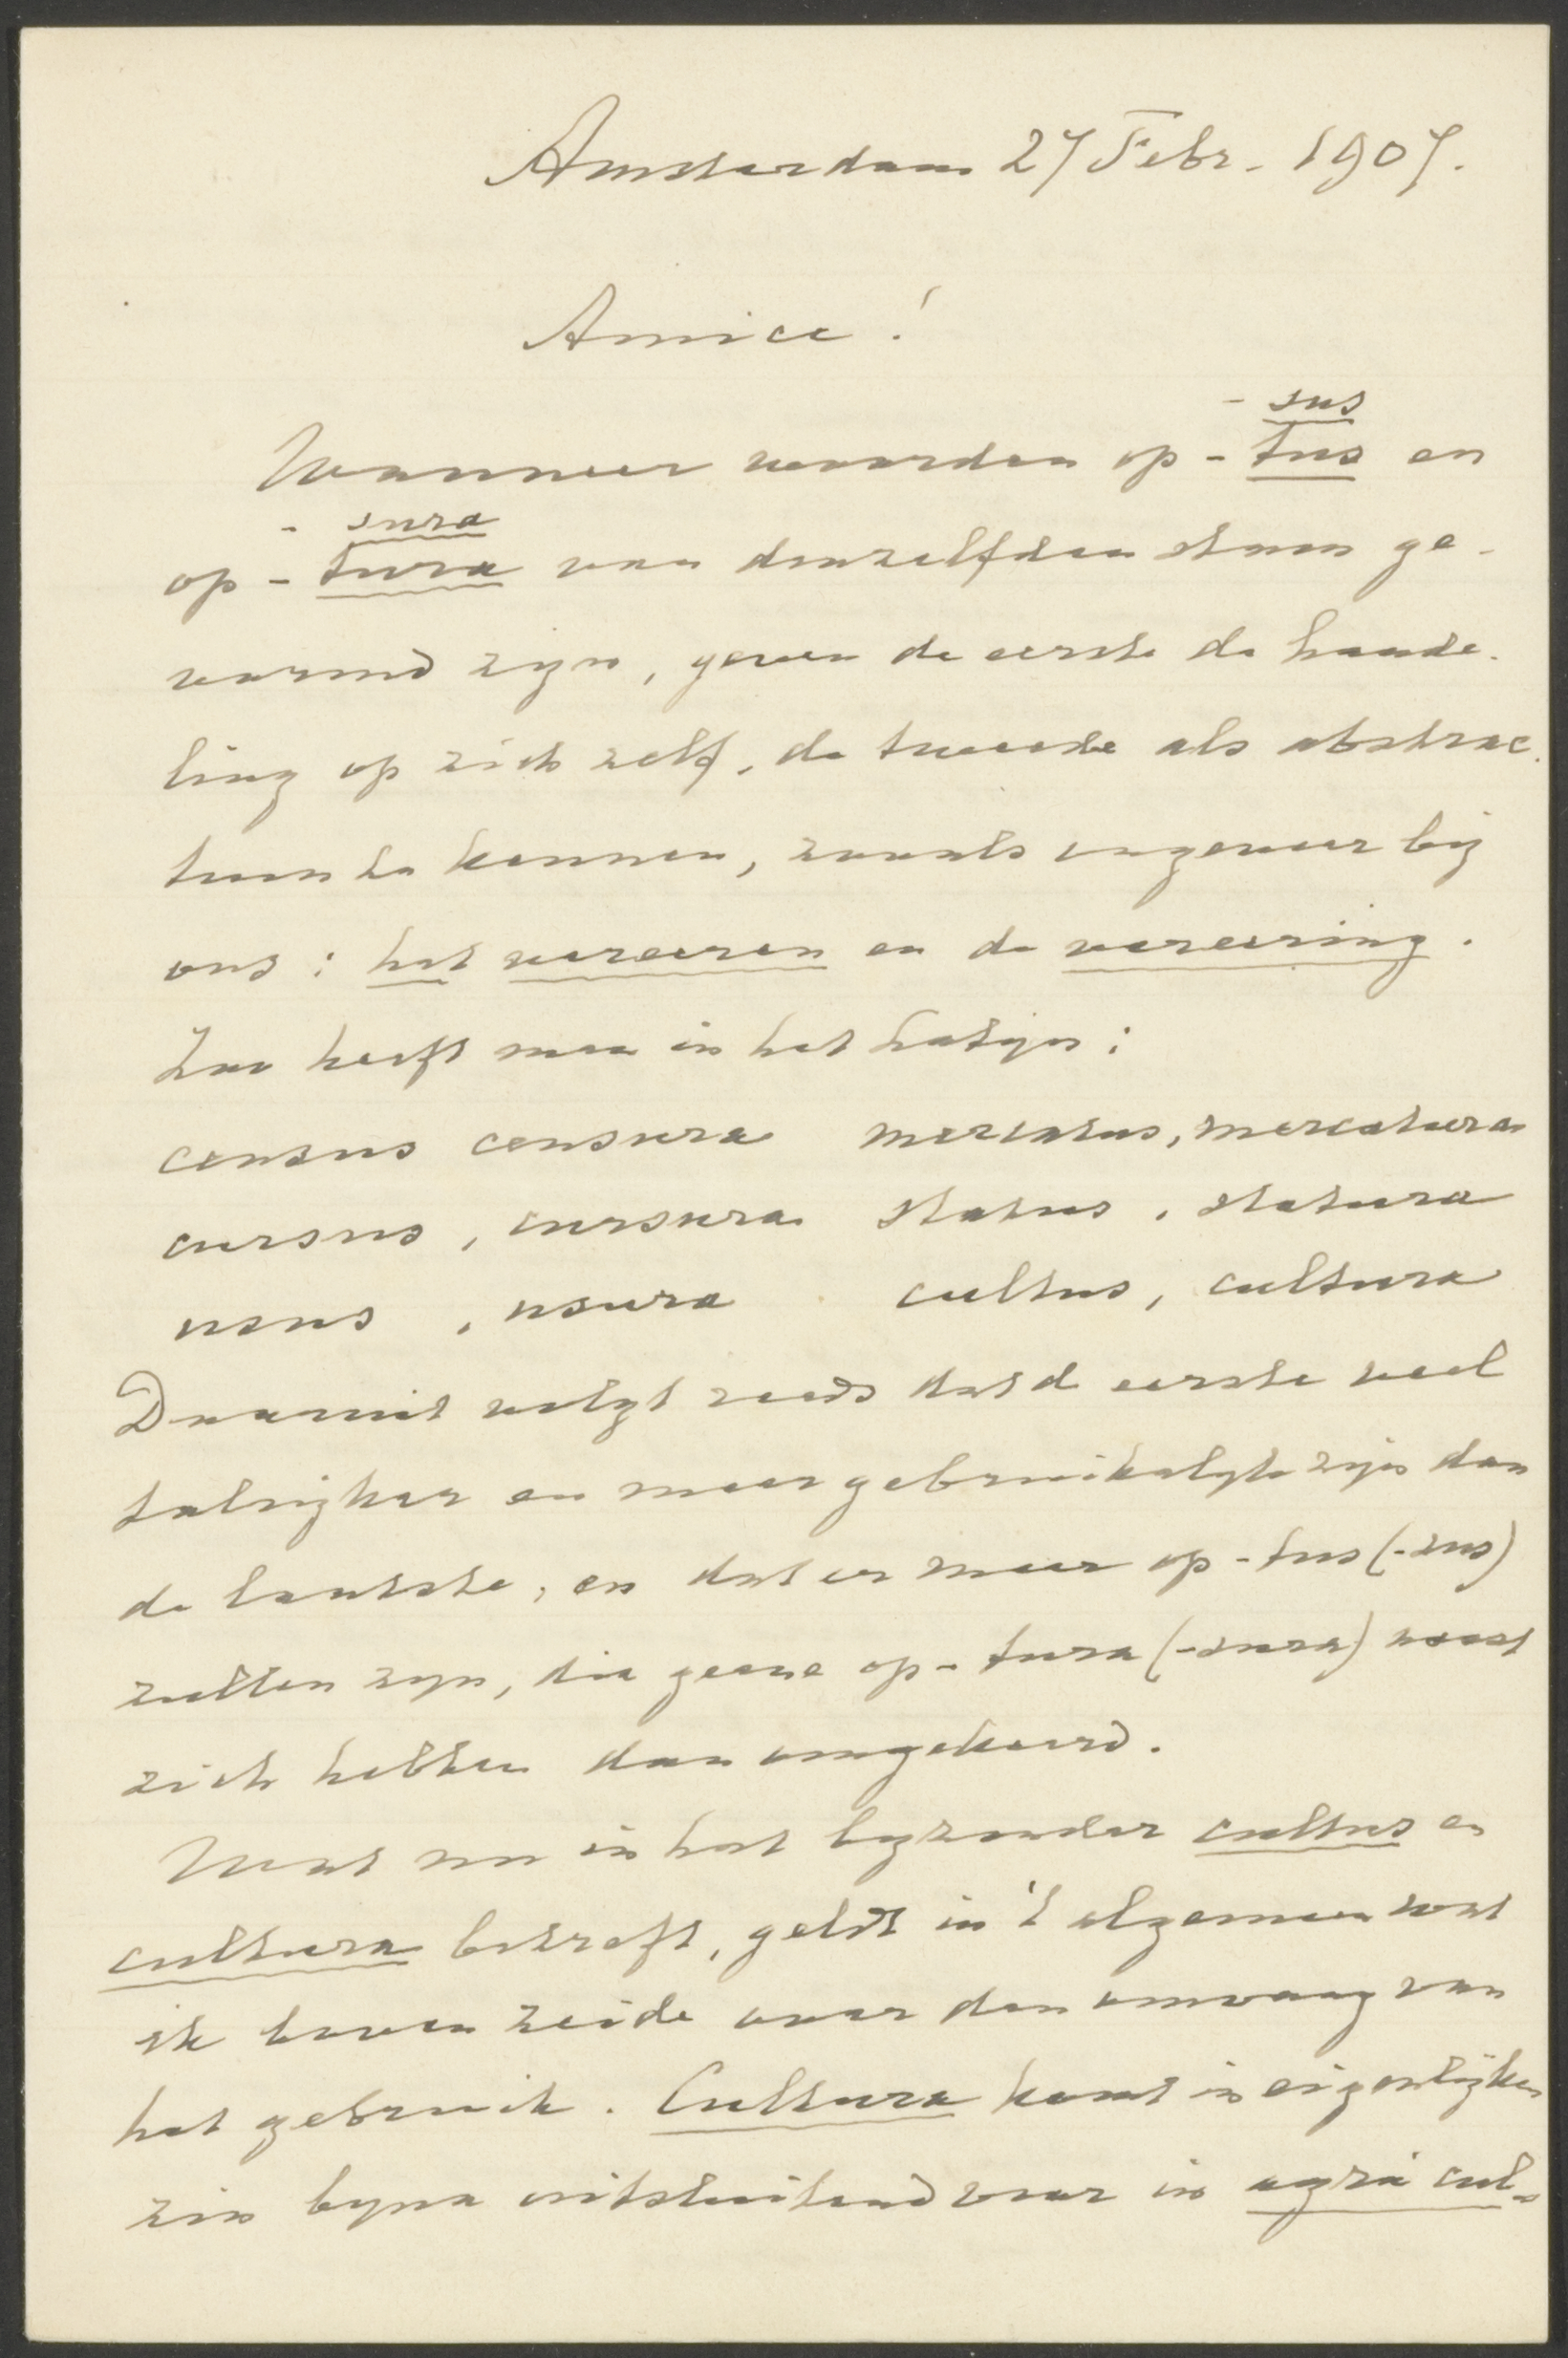 Amsterdam 27 Febr. 1907.
Amice!
- sus
Wanneer woorden op - tus en
- sura
op - tura van denzelfden stam ge-
vormd zijn, geven de eerste de hande-
ling op zich zelf, de tweede als abstrac-
tum te kennen, zooals ongeveer bij
ons: het vereeren en de vereering.
Zoo heeft men in het Latijn:
census censura mercatus, mercatura
cursus, cursura status, statura
usus, usura cultus, cultura
Daaruit volgt reeds dat d eerste veel
talrijker en meer gebruikelijk zijn dan
de laatste, en dat er meer op - tus (-sus)
zullen zijn, die geene op - tura (-sura) naast
zich hebben dan omgekeerd.
Wat nu in het bijzonder cultus en
cultura betreft, geldt in 't algemeen wat
ik boven zeide over den omvang van
het gebruik. Cultura komt in eigenlijken
zin bijna uitsluitend voor in agri cul-